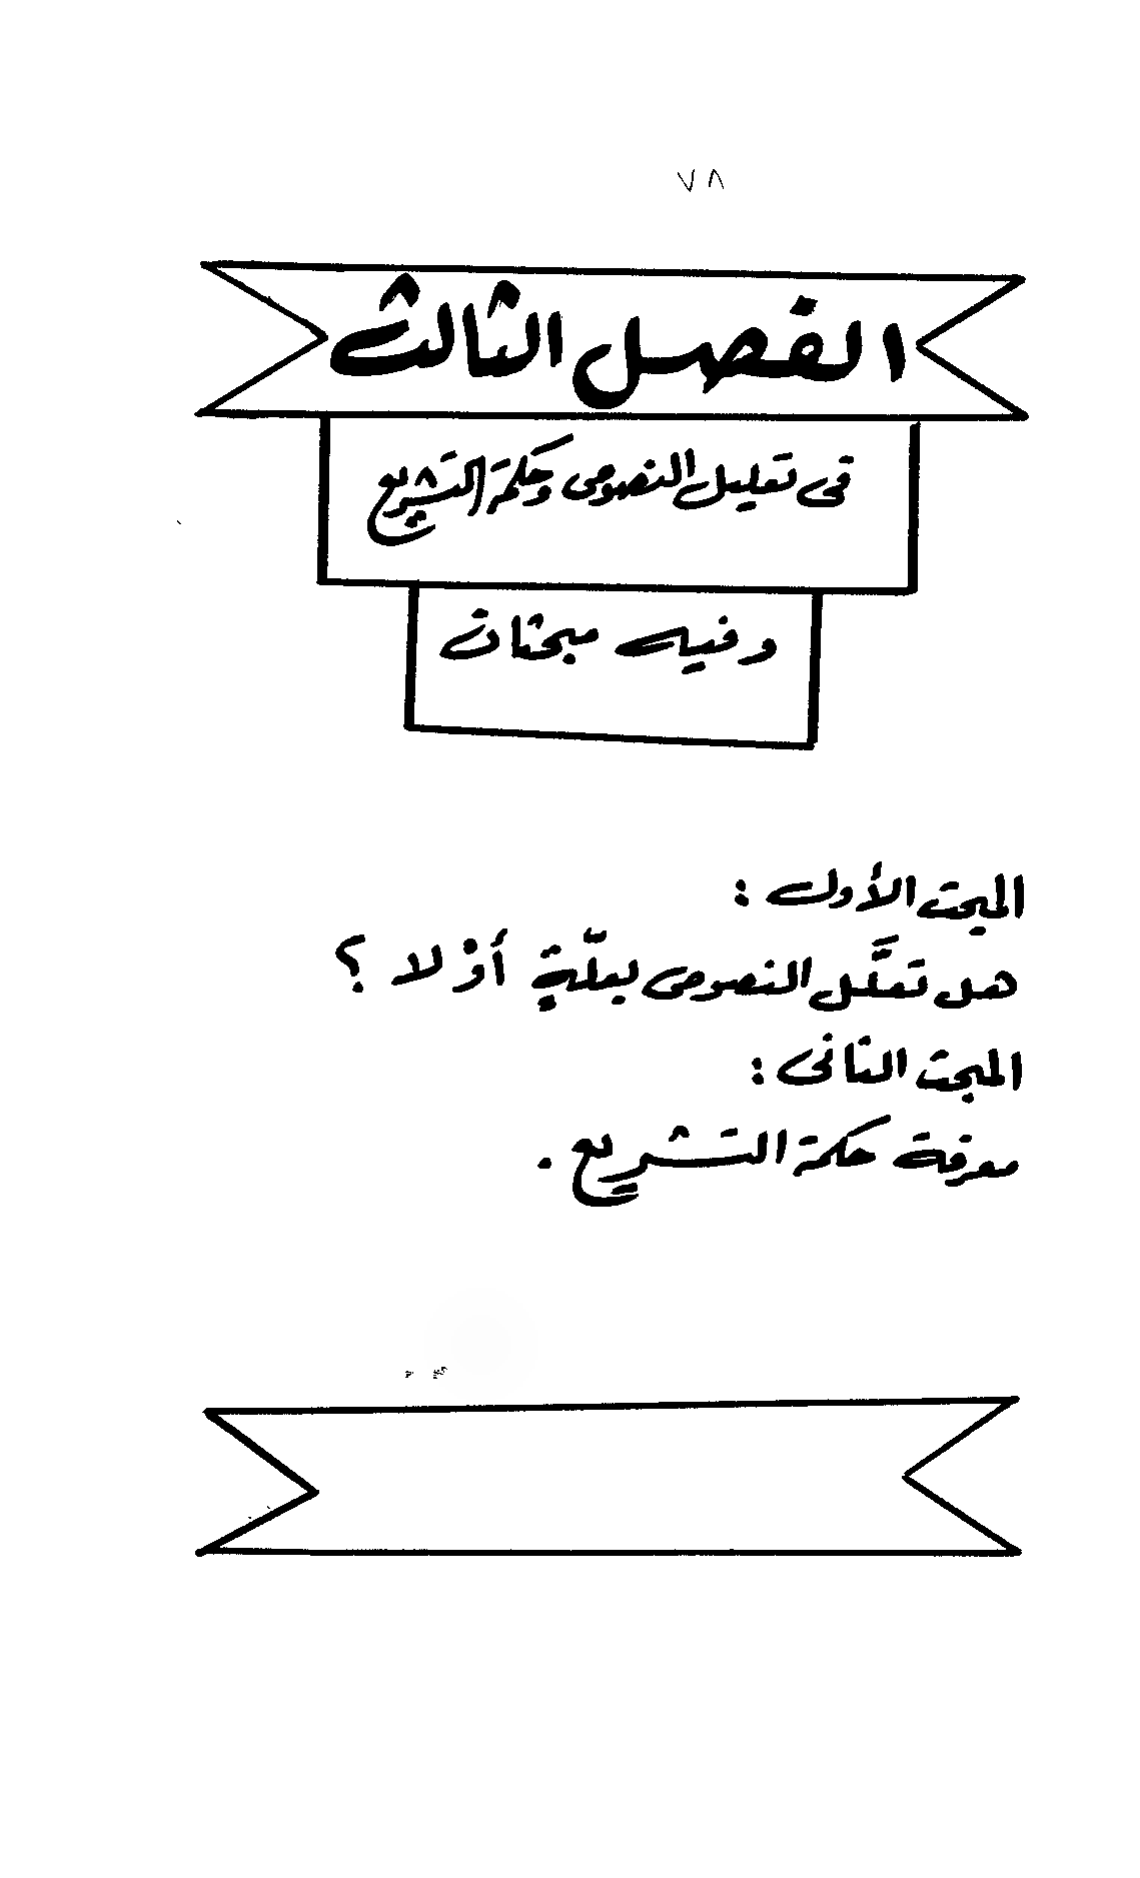 ٧٨
الفصل الثالث
فى تعليل النصوص وحكمة التشريع
وفيه مبحثان
المبحث الأول :
هل تعلَّل النصوص بعلّةٍ أوْ لا ؟
المبحث الثانى :
معرفة حكمة التشريع .